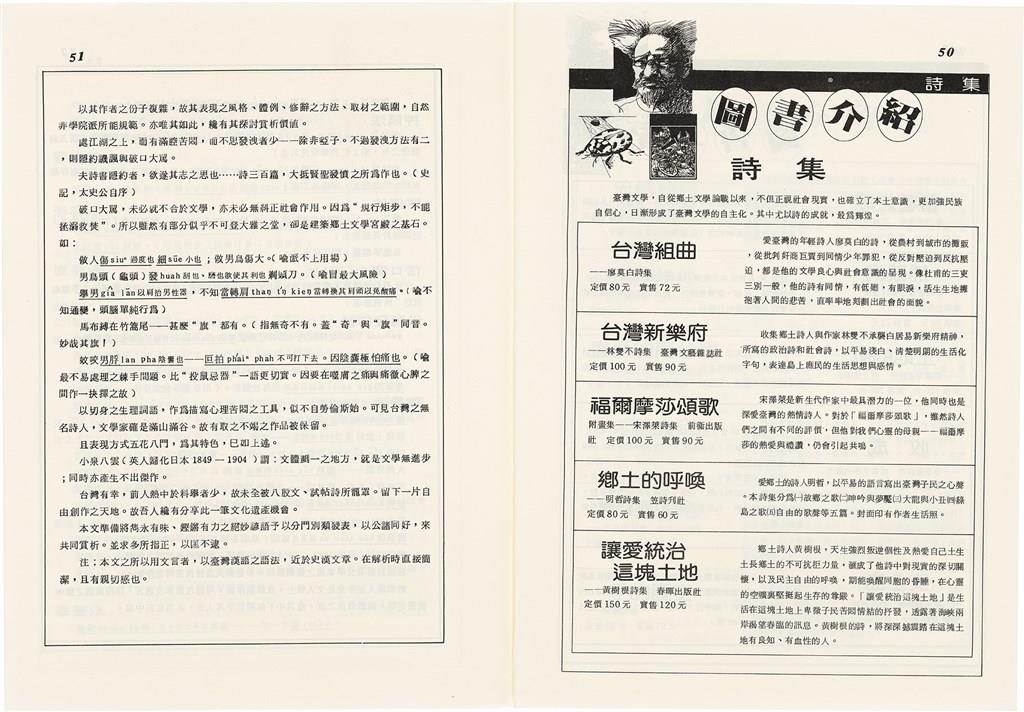 51
以其作者之份子複雜，故其表現之風格、體例、修辭之方法、取材之範圍，自然
非學院派所能規範。亦唯其如此，纔有其探討賞析價值。
處江湖之上，而有滿腔苦悶，而不思發洩者少——除非聖子。不過發洩方法有二
，則隱約譏諷與破口大罵。
夫詩書隱約者，欲遂其志之思也……詩三百篇，大抵賢聖發憤之所為作也。（史
記，太史公自序）
破口大罵，未必就不合於文學，亦未必無糾正社會作用。因為“規行矩步，不能
拯溺救焚”。所以雖然有部分似乎不可登大雅之堂，卻是建築鄉土文學宮殿之基石。
如：
做人傷siuⁿ過度也細sūe小也；做男鳥傷大。（喻派不上用場）
男鳥頭（龜頭）發huah刮也、磨也欲使其利也剃頭刀。（喻冒最大風險）
舉男giâ lān以肩抬男性器，不知當轉肩
當轉換其肩頭以免酸痛。（喻不
知通變，頭腦單純行為）
馬布縛在竹篙尾——甚麼“旗”都有。（指無奇不有。蓋“奇”與“旗”同音。
妙哉其旗！）
蚊咬男脬lan pha陰囊也——叵拍pháiⁿ phah不可打下去。因陰囊極怕痛也。（喻
最不易處理之棘手問題。比“投鼠忌器”一語更切實。因要在噬膚之痛與痛徹心脾之
間作一抉擇之故）
以切身之生理詞語，作為描寫心理苦悶之工具，似不自勞倫斯始。可見台灣之無
名詩人，文學家確是滿山滿谷。故有取之不竭之作品被保留。
且表現方式五花八門，為其特色，已如上述。
小泉八雲（英人歸化日本1849—1904）謂：文體劃一之地方，就是文學無進步
；同時亦產生不出傑作。
台灣有幸，前人熱中於科學者少，故未全被八股文、試帖詩所籠罩。留下一片自
由創作之天地。故吾人纔有分享此一筆文化遺產機會。
本文準備將雋永有味、鏗鏘有力之絕妙諺語予以分門別類發表，以公諸同好，來
共同賞析。並求多所指正，以匡不逮。
注：本文之所以用文言者，以臺灣漢語之語法，近於史漢文章。在解析時直接簡
潔，且有親切感也。
50
詩集
圖書介紹
詩集
臺灣文學，自從鄉土文學論戰以來，不但正視社會現實，也確立了本土意識，更加強民族
自信心，日漸形成了臺灣文學的自主化。其中尤以詩的成就，最為輝煌。
台灣組曲
——廖莫白詩集
定價80元　實售72元
愛臺灣的年輕詩人廖莫白的詩，從農村到城市的攤販
，從批判奸商巨賈到同情少年罪犯，從反對壓迫到反抗壓
迫，都是他的文學良心與社會意識的呈現。像杜甫的三吏
三別一般，他的詩有同情，有低迴，有眼淚，活生生地擁
抱著人間的悲苦，直率率地刻劃出社會的面貌。
台灣新樂府
——林雙不詩集　臺灣文藝雜誌社
定價100元　實售90元
收集鄉土詩人與作家林雙不承襲白居易新樂府精神，
所寫的政治詩和社會詩，以平易淺白、清楚明朗的生活化
字句，表達島上庶民的生活思想與感情。
福爾摩莎頌歌
附畫集——宋澤萊詩集　前衛出版
社　定價100元　實售90元
宋澤萊是新生代作家中最具潛力的一位，他同時也是
深愛臺灣的熱情詩人。對於「福爾摩莎頌歌」，雖然詩人
們之間有不同的評價，但他對我們心靈的母親——福爾摩
莎的熱愛與禮讚，仍會引起共鳴。
鄉土的呼喚
——明哲詩集　笠詩刊社
定價80元　實售60元
愛鄉土的詩人明哲，以平易的語言寫出臺灣子民之心聲
。本詩集分為㈠故鄉之歌㈡呻吟與夢魘㈢大龍與小丑㈣綠
島之歌㈤自由的歌聲等五篇。封面印有作者生活照。
讓愛統治
這塊土地
——黃樹根詩集　春暉出版社
定價150元　實售120元
鄉土詩人黃樹根，天生強烈叛逆個性及熱愛自己土生
土長鄉土的不可抗拒力量，釀成了他詩中對現實的深切關
懷，以及民主自由的呼喚，期能喚醒同胞的昏睡，在心靈
的空曠廣墅挺起生存的尊嚴。「讓愛統治這塊土地」是生
活在這塊土地上卑微子民苦悶情結的抒發，透露著海峽兩
岸渴望春臨的訊息。黃樹根的詩，將深深撼震踏在這塊土
地有良知、有血性的人。